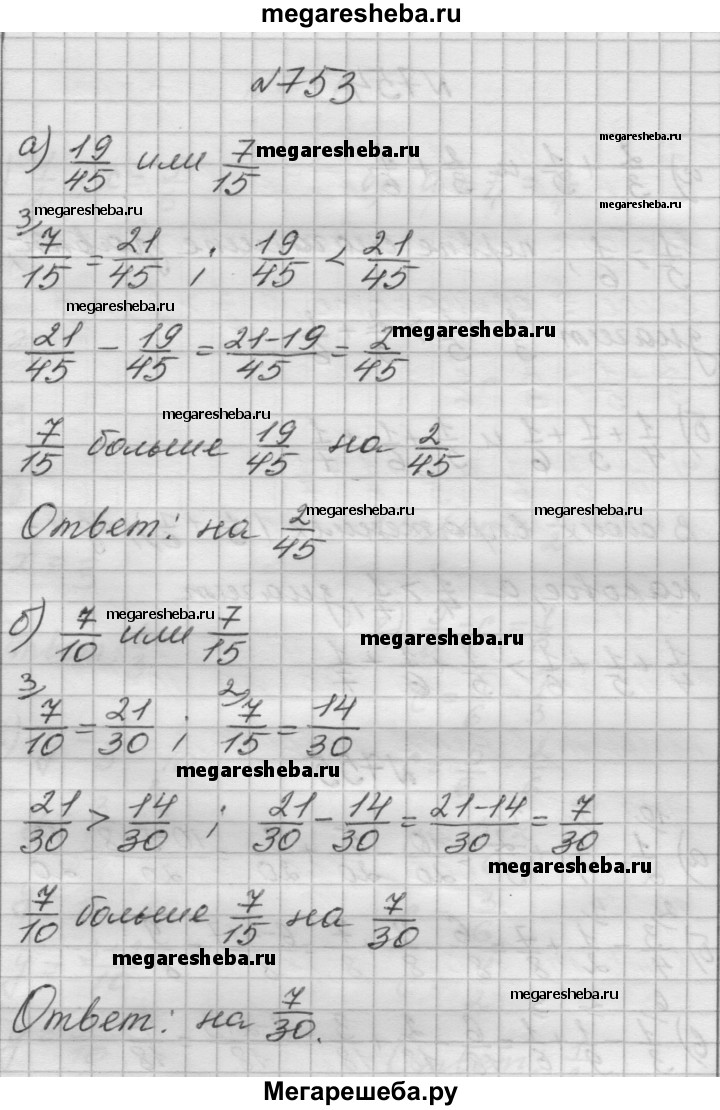 megaresheba.ru
№753
а) 19/45 или 7/15 megaresheba.ru megaresheba.ru
megaresheba.ru megaresheba.ru
3) 7/15 = 21/45 ; 19/45 < 21/45
megaresheba.ru
21/45 - 19/45 = 21-19/45 = 2/45 megaresheba.ru
megaresheba.ru
7/15 больше 19/45 на 2/45
Ответ: на 2/45 megaresheba.ru megaresheba.ru
б) 7/10 или 7/15 megaresheba.ru megaresheba.ru
3) 7/10 = 21/30 ; 2) 7/15 = 14/30
megaresheba.ru
21/30 > 14/30 ; 21/30 - 14/30 = 21-14/30 = 7/30
megaresheba.ru
7/10 больше 7/15 на 7/30
megaresheba.ru
megaresheba.ru
Ответ: на 7/30.
Мегарешеба.ру